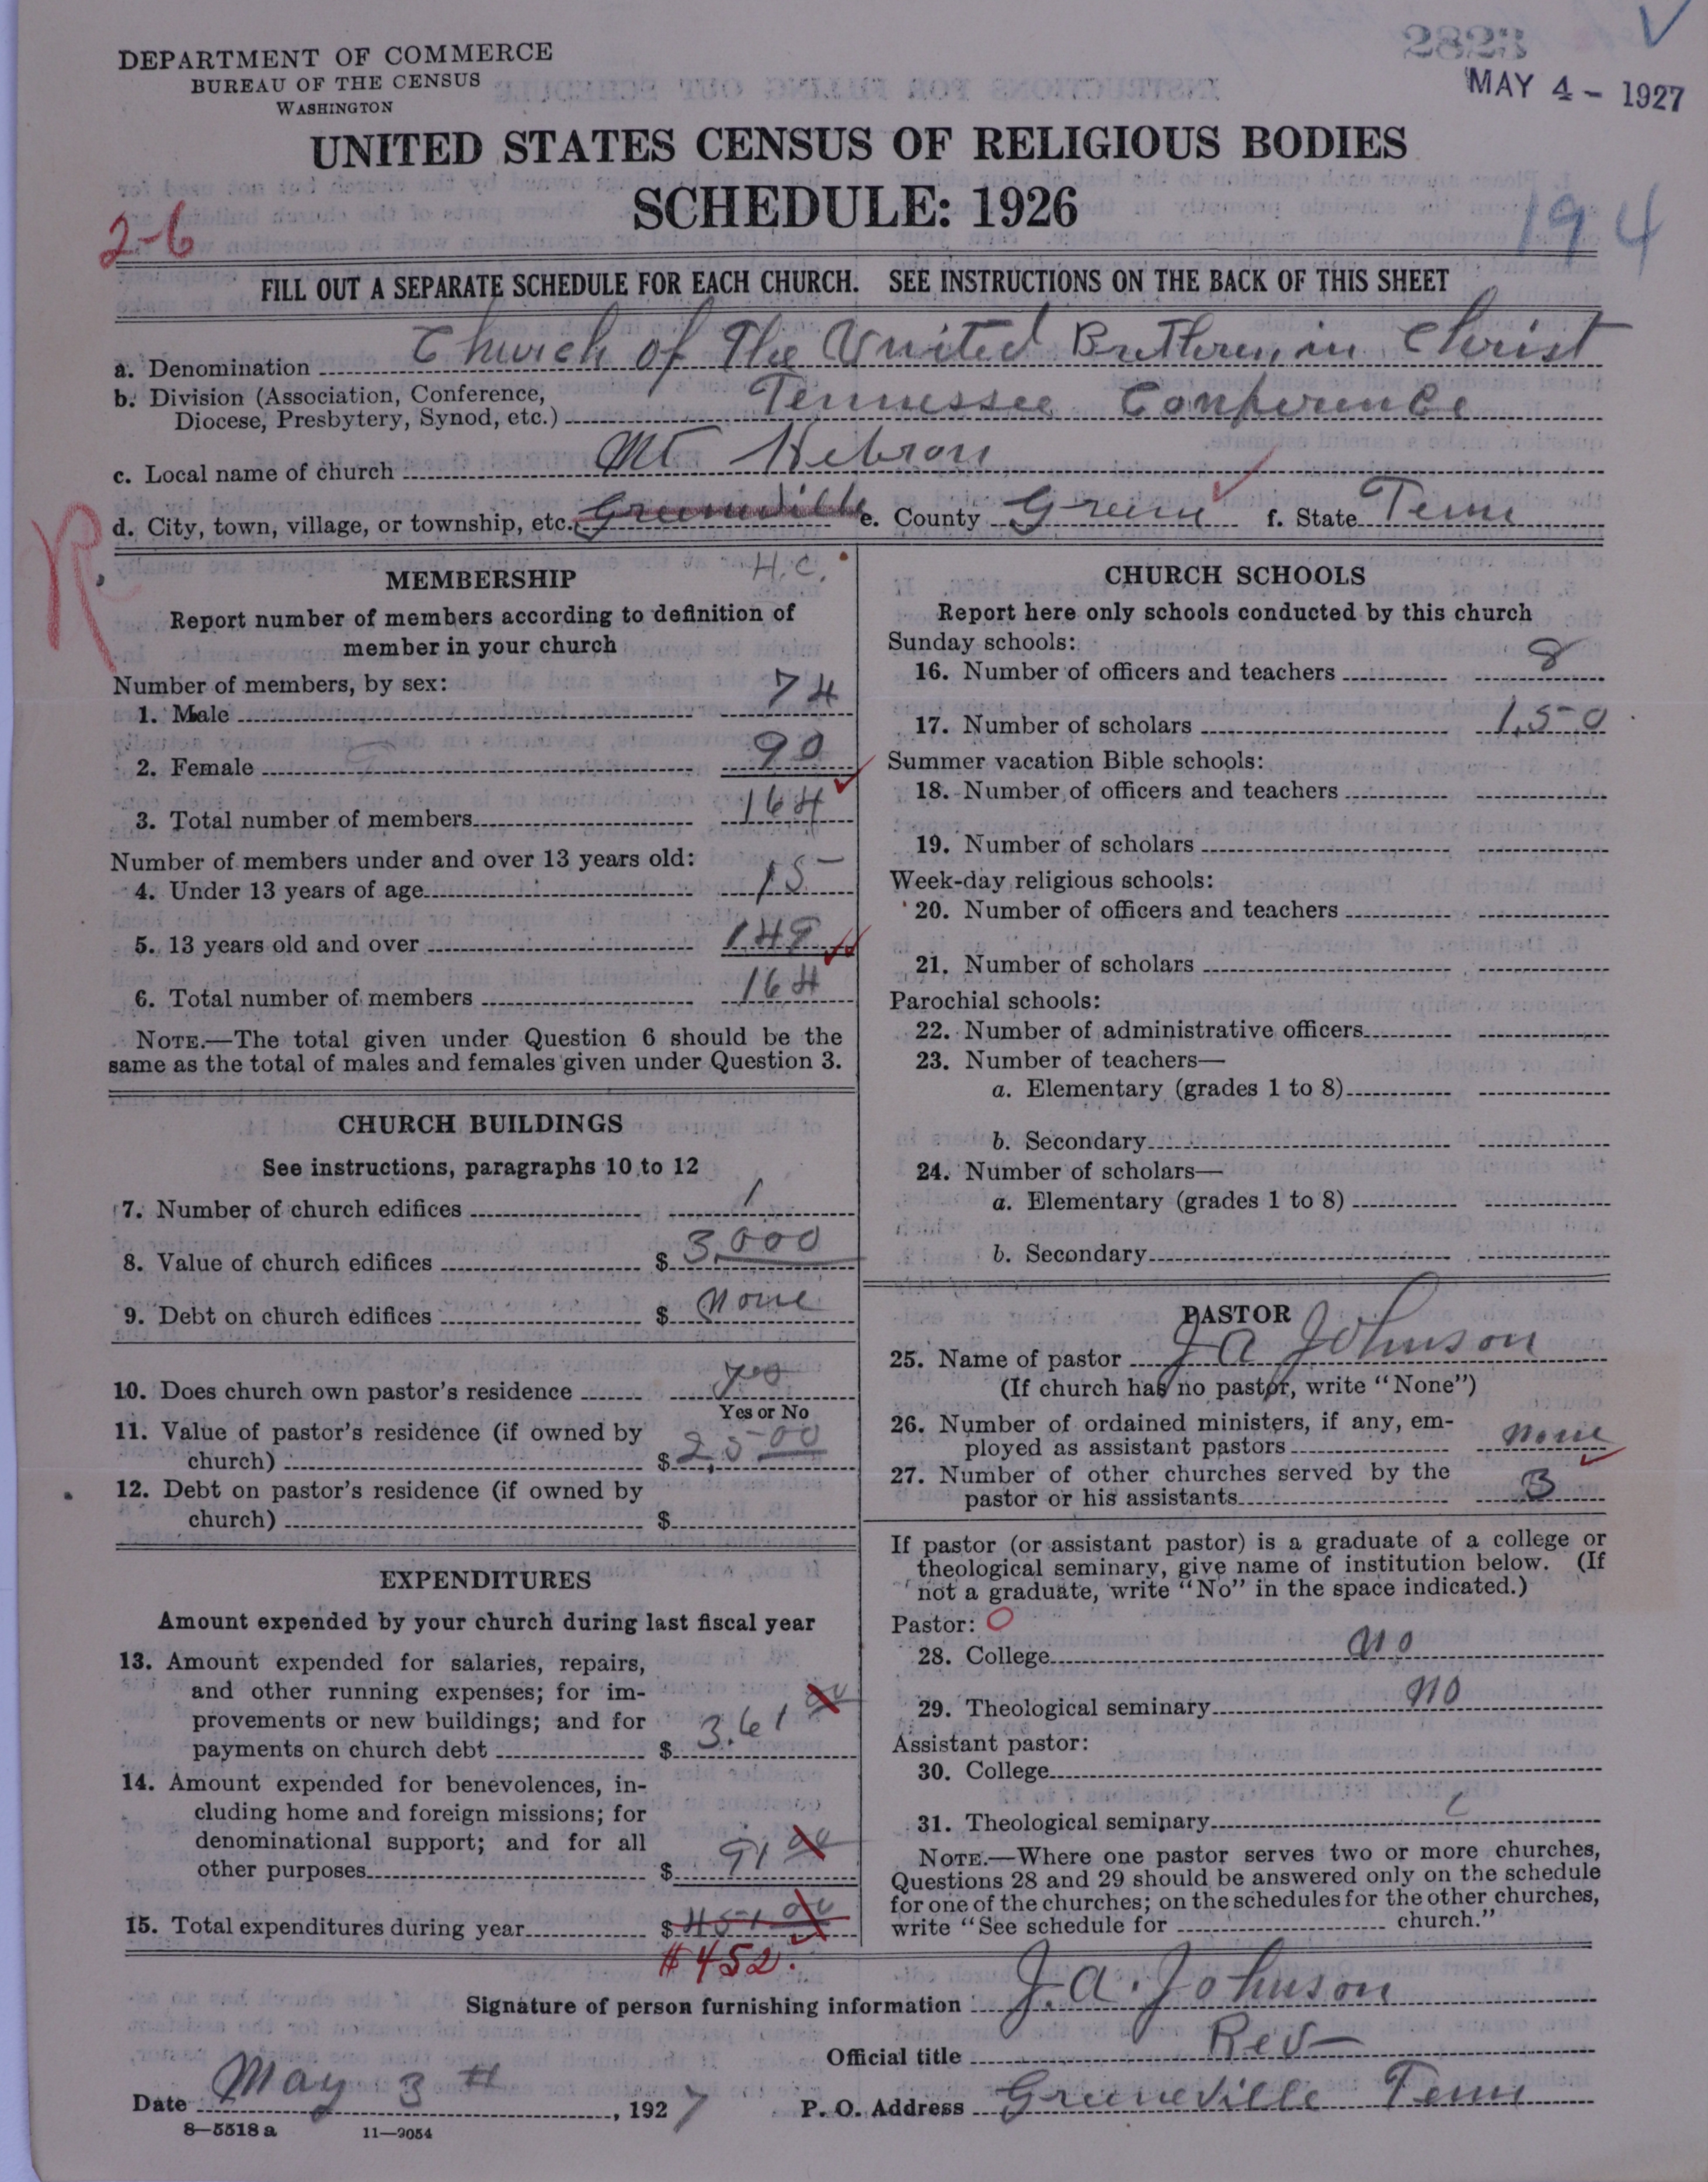 2823
DEPARTMENT OF COMMERCE
BUREAU OF THE CENSUS
WASHINGTON
MAY 4 - 1927
UNITED STATES CENSUS OF RELIGIOUS BODIES
SCHEDULE: 1926
2-6
194
FILL OUT A SEPARATE SCHEDULE FOR EACH CHURCH. SEE INSTRUCTIONS ON THE BACK OF THIS SHEET
a. Denomination Church of The United Brethren in Christ
b. Division (Association, Conference,
Diocese, Presbytery, Synod, etc.) Tennessee Conference
c. Local name of church Mt Hebron
d. City, town, village, or township, etc. Greenville e. County Greene f. State Tenn
R
H.C.
MEMBERSHIP
Report number of members according to definition of
member in your church
Number of members, by sex:
1. Male 74
2. Female 90
3. Total number of members 164
Number of members under and over 13 years old:
4. Under 13 years of age 15
5. 13 years old and over 149
6. Total number of members 164
NOTE.—The total given under Question 6 should be the
same as the total of males and females given under Question 3.
CHURCH BUILDINGS
See instructions, paragraphs 10 to 12
7. Number of church edifices 1
8. Value of church edifices $ 3,000
9. Debt on church edifices $ None
10. Does church own pastor's residence yes
Yes or No
11. Value of pastor's residence (if owned by
church) $ 2,500
12. Debt on pastor's residence (if owned by
church) $
EXPENDITURES
Amount expended by your church during last fiscal year
13. Amount expended for salaries, repairs,
and other running expenses; for im-
provements or new buildings; and for
payments on church debt $ 361 00
14. Amount expended for benevolences, in-
cluding home and foreign missions; for
denominational support; and for all
other purposes $ 91 00
15. Total expenditures during year $ 451 00
$452.
CHURCH SCHOOLS
Report here only schools conducted by this church
Sunday schools:
16. Number of officers and teachers 8
17. Number of scholars 150
Summer vacation Bible schools:
18. Number of officers and teachers
19. Number of scholars
Week-day religious schools:
20. Number of officers and teachers
21. Number of scholars
Parochial schools:
22. Number of administrative officers
23. Number of teachers—
a. Elementary (grades 1 to 8)
b. Secondary
24. Number of scholars—
a. Elementary (grades 1 to 8)
b. Secondary
PASTOR
25. Name of pastor J A Johnson
(If church has no pastor, write "None")
26. Number of ordained ministers, if any, em-
ployed as assistant pastors None
27. Number of other churches served by the
pastor or his assistants 3
If pastor (or assistant pastor) is a graduate of a college or
theological seminary, give name of institution below. (If
not a graduate, write "No" in the space indicated.)
Pastor: O
28. College No
29. Theological seminary No
Assistant pastor:
30. College
31. Theological seminary
NOTE.—Where one pastor serves two or more churches,
Questions 28 and 29 should be answered only on the schedule
for one of the churches; on the schedules for the other churches,
write "See schedule for church."
Signature of person furnishing information J. A. Johnson
Official title Rev
Date May 3 th, 1927 P. O. Address Greeneville Tenn
8—5518 a 11—9054